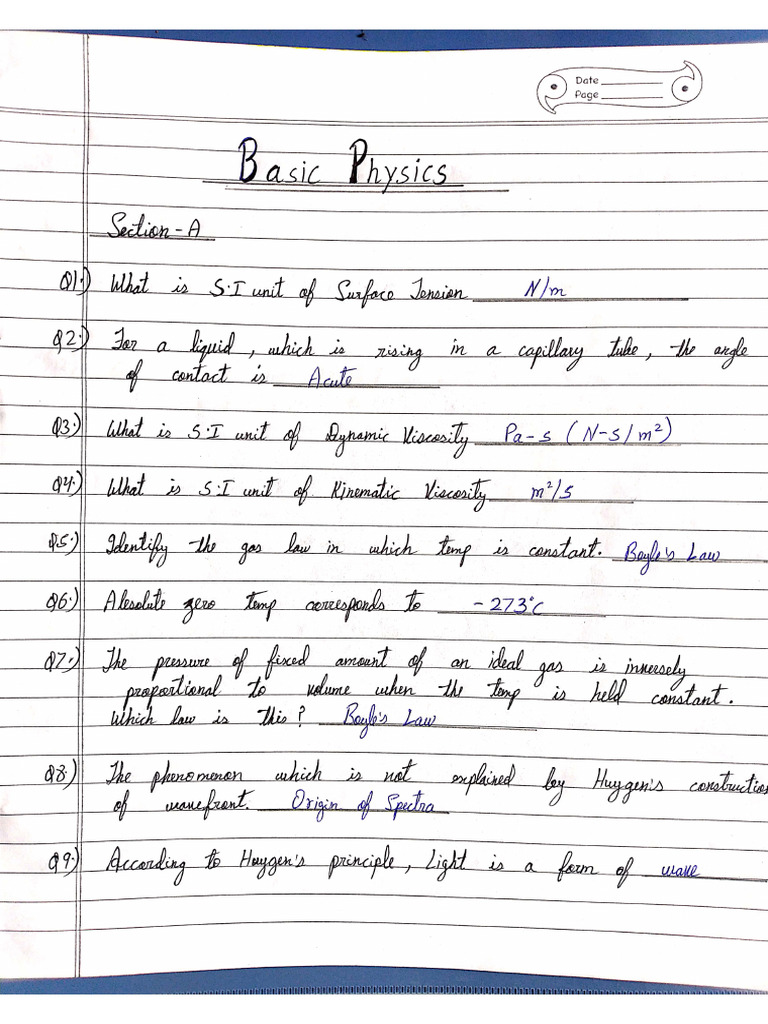 Date
Page
Basic Physics
Section-A
Q1.) What is S.I unit of Surface Tension N/m
Q2.) For a liquid, which is rising in a capillary tube, the angle
of contact is Acute
Q3.) What is S.I unit of Dynamic Viscosity Pa-s (N-s/m²)
Q4.) What is S.I unit of Kinematic Viscosity m²/s
Q5.) Identify the gas law in which temp is constant. Boyle's Law
Q6.) Absolute zero temp corresponds to -273°C
Q7.) The pressure of fixed amount of an ideal gas is inversely
proportional to volume when the temp is held constant.
Which law is this? Boyle's Law
Q8.) The phenomenon which is not explained by Huygen's construction
of wavefront. Origin of Spectra
Q9.) According to Huygen's principle, Light is a form of wave